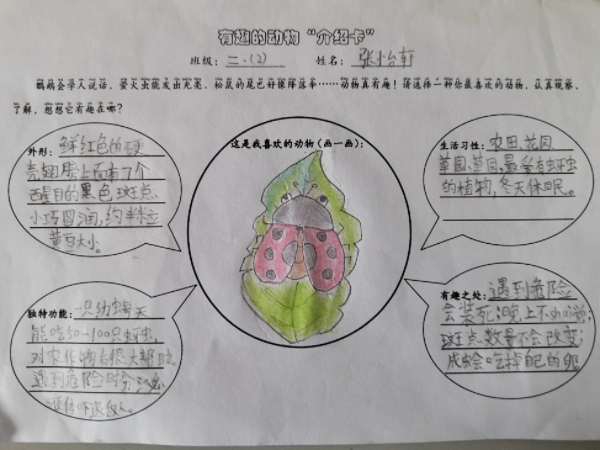 有趣的动物“介绍卡”
班级：二.(2) 姓名：张怡轩
鹦鹉会学人说话，萤火虫能发出光亮，松鼠的尾巴好像降落伞……动物真有趣！请选择一种你最喜欢的动物，认真观察、
了解，想想它有趣在哪？
外形：鲜红色的硬
壳翅膀上面有7个
醒目的黑色斑点、
小巧圆润,约半粒
黄豆大小。
这是我喜欢的动物（画一画）：
生活习性：农田、花园
草园、草园,最爱有蚜虫
的植物,冬天休眠。
独特功能：一只幼虫每天
能吃50-100只蚜虫,
对农作物有很大帮助.
遇到危险时分泌
液体吓退敌人。
有趣之处：遇到危险
会装死;晚上不
斑点数量不会改变;
成虫会吃掉自己的卵